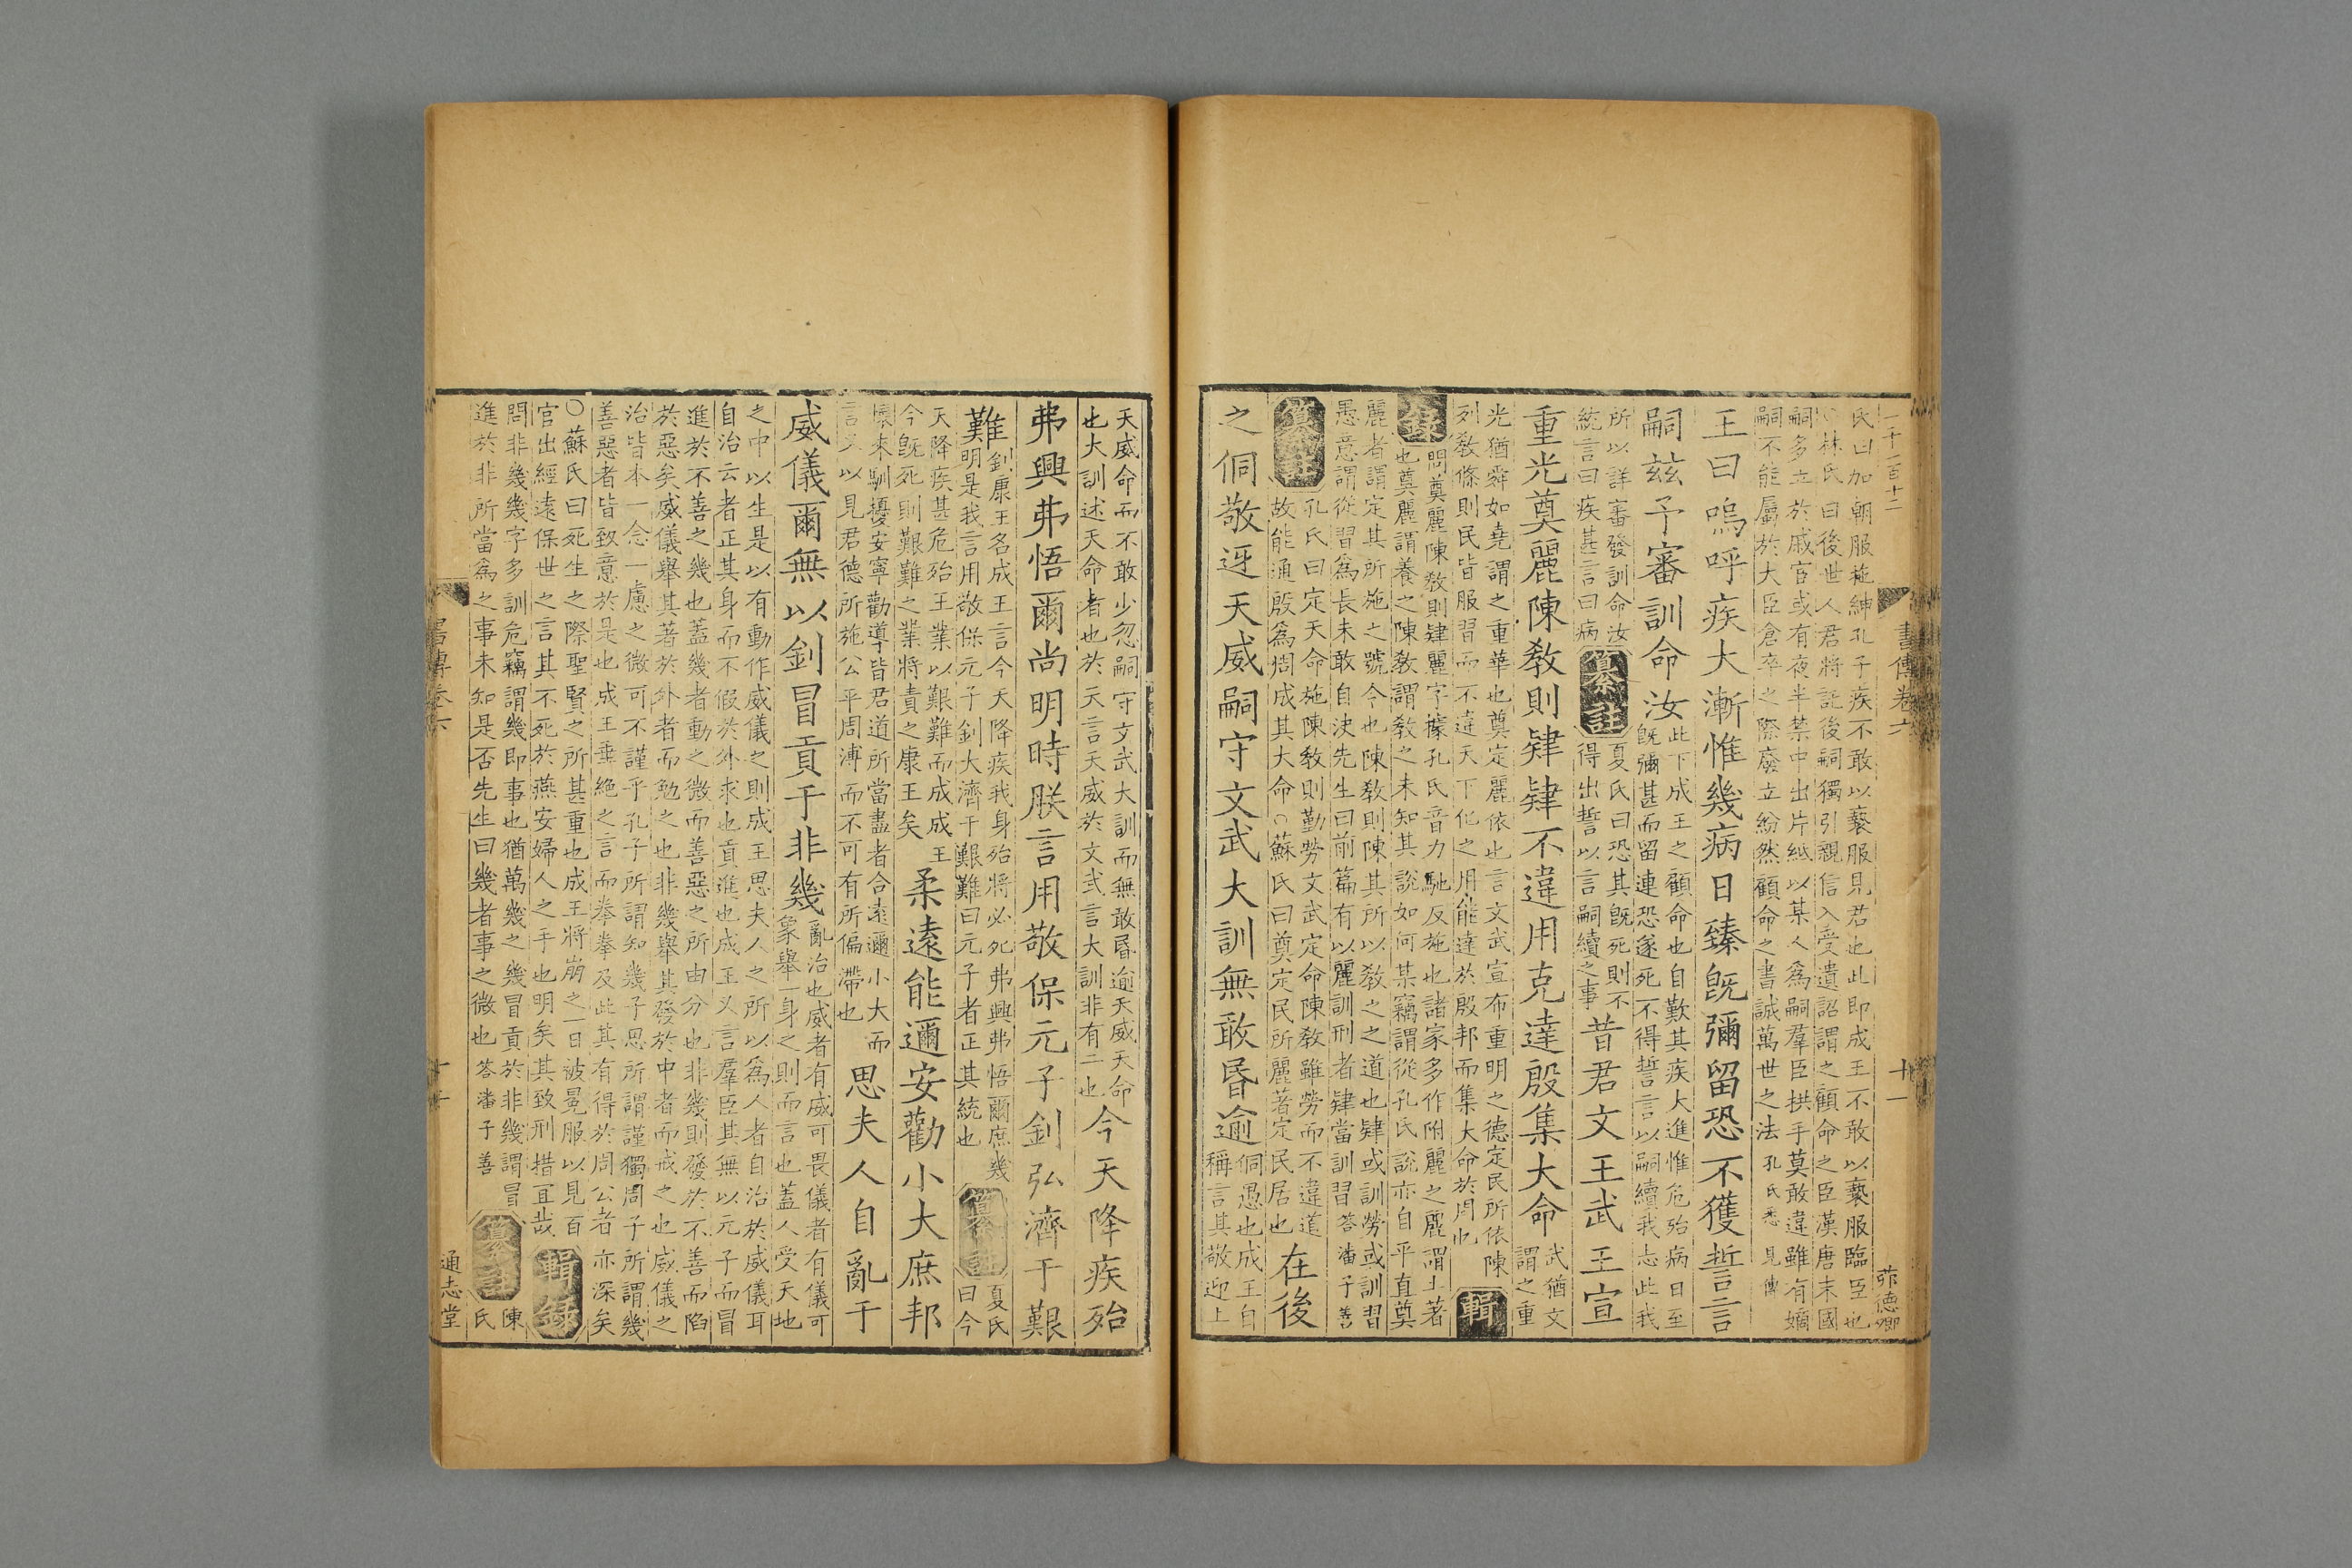 二十一百十二
書傳卷六
十一
氏曰加朝服拖紳孔子疾不敢以褻服見君也此即成王不敢以褻服臨臣也
○林氏曰後世人君將託後嗣獨引親信入受遺詔謂之顧命之臣漢唐末國
嗣多立於戚宦或有夜半禁中出片紙以某人為嗣羣臣拱手莫敢違雖有嫡
嗣不能屬於大臣倉卒之際廢立紛然顧命之書誠萬世之法孔氏悉見傳
王曰嗚呼疾大漸惟幾病日臻既彌留恐不獲誓言
嗣茲予審訓命汝
此下成王之顧命也自歎其疾大進惟危殆病日至
既彌甚而留連恐遂死不得誓言以嗣續我志此我
所以詳審發訓命汝
統言曰疾甚言曰病
纂註
夏氏曰恐其既死則不
得出誓以言嗣續之事
昔君文王武王宣
重光奠麗陳教則肄肄不違用克達殷集大命
武猶文
謂之重
光猶舜如堯謂之重華也奠定麗依也言文武宣布重明之德定民所依陳
列教條則民皆服習而不違天下化之用能達於殷邦而集大命於周也
輯
錄
問奠麗陳教則肄麗字據孔氏音力馳反施也諸家多作附麗之麗謂土著
也奠麗謂養之陳教謂教之未知其說如何某竊謂從孔氏說亦自平直奠
麗者謂定其所施之號令也陳教則陳其所以教之之道也肄或訓勞或訓習
愚意謂從習為長未敢自決先生曰前篇有以麗訓刑者肄當訓習答潘子善
纂註
孔氏曰定天命施陳教則勤勞文武定命陳教雖勞而不違道
故能通殷為周成其大命○蘇氏曰奠定民所麗著定民居也
在後
之侗敬迓天威嗣守文武大訓無敢昬逾
侗愚也成王自
稱言其敬迎上
天威命而不敢少忽嗣守文武大訓而無敢昬逾天威天命
也大訓述天命者也於天言天威於文武言大訓非有二也
今天降疾殆
弗興弗悟爾尚明時朕言用敬保元子釗弘濟于艱
難
釗康王名成王言今天降疾我身殆將必死弗興弗悟爾庶幾
明是我言用敬保元子釗大濟于艱難曰元子者正其統也
纂註
夏氏
曰今
天降疾甚危殆王業以艱難而成成王
今既死則艱難之業將責之康王矣
柔遠能邇安勸小大庶邦
懷來馴擾安寧勸導皆君道所當盡者合遠邇小大而
言又以見君德所施公平周溥而不可有所偏滯也
思夫人自亂于
威儀爾無以釗冒貢于非幾
亂治也威者有威可畏儀者有儀可
象舉一身之則而言也蓋人受天地
之中以生是以有動作威儀之則成王思夫人之所以為人者自治於威儀耳
自治云者正其身而不假於外求也貢進也成王又言羣臣其無以元子而冒
進於不善之幾也蓋幾者動之微而善惡之所由分也非幾則發於不善而陷
於惡矣威儀舉其著於外者而勉之也非幾舉其發於中者而戒之也威儀之
治皆本一念一慮之微可不謹乎孔子所謂知幾子思所謂謹獨周子所謂幾
善惡者皆致意於是也成王垂絶之言而拳拳及此其有得於周公者亦深矣
○蘇氏曰死生之際聖賢之所甚重也成王將崩之一日被冕服以見百
官出經遠保世之言其不死於燕安婦人之手也明矣其致刑措宜哉
輯錄
問非幾幾字多訓危竊謂幾即事也猶萬幾之幾冒貢於非幾謂冒
進於非所當為之事未知是否先生曰幾者事之微也答潘子善
纂註
陳
氏
書傳卷六
通志堂